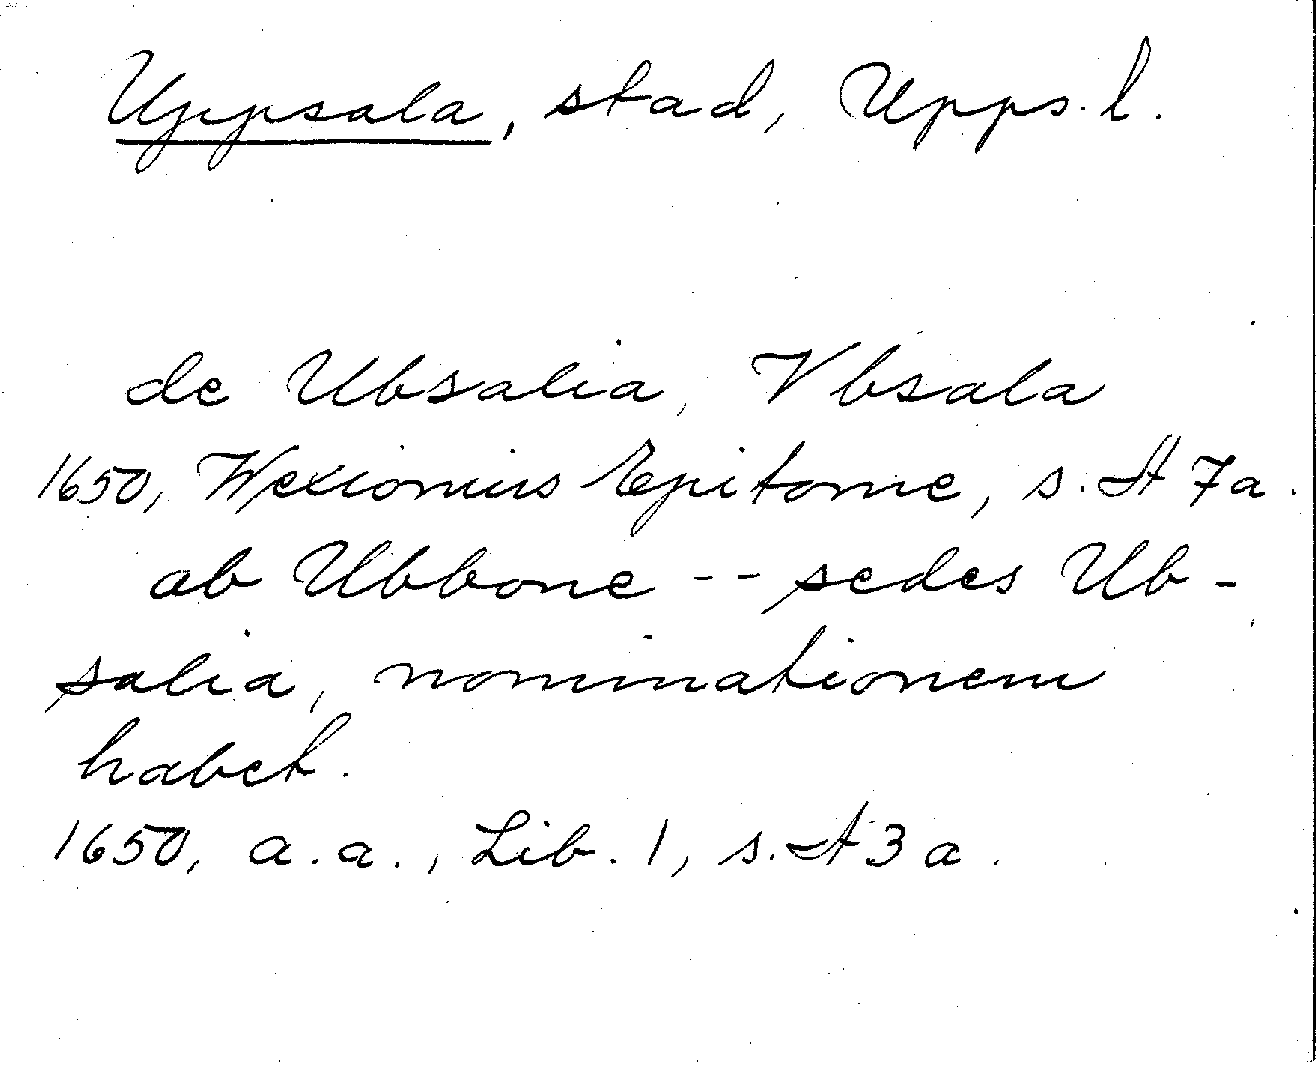 Uppsala, stad, Upps. l.
de Ubsalia, Vbsala
1650, Wexionius Epitome, s. A 7a.
ab Ubbone -- sedes Ub-
salia, nominationem
habet.
1650, a.a., Lib. 1, s. A 3 a.